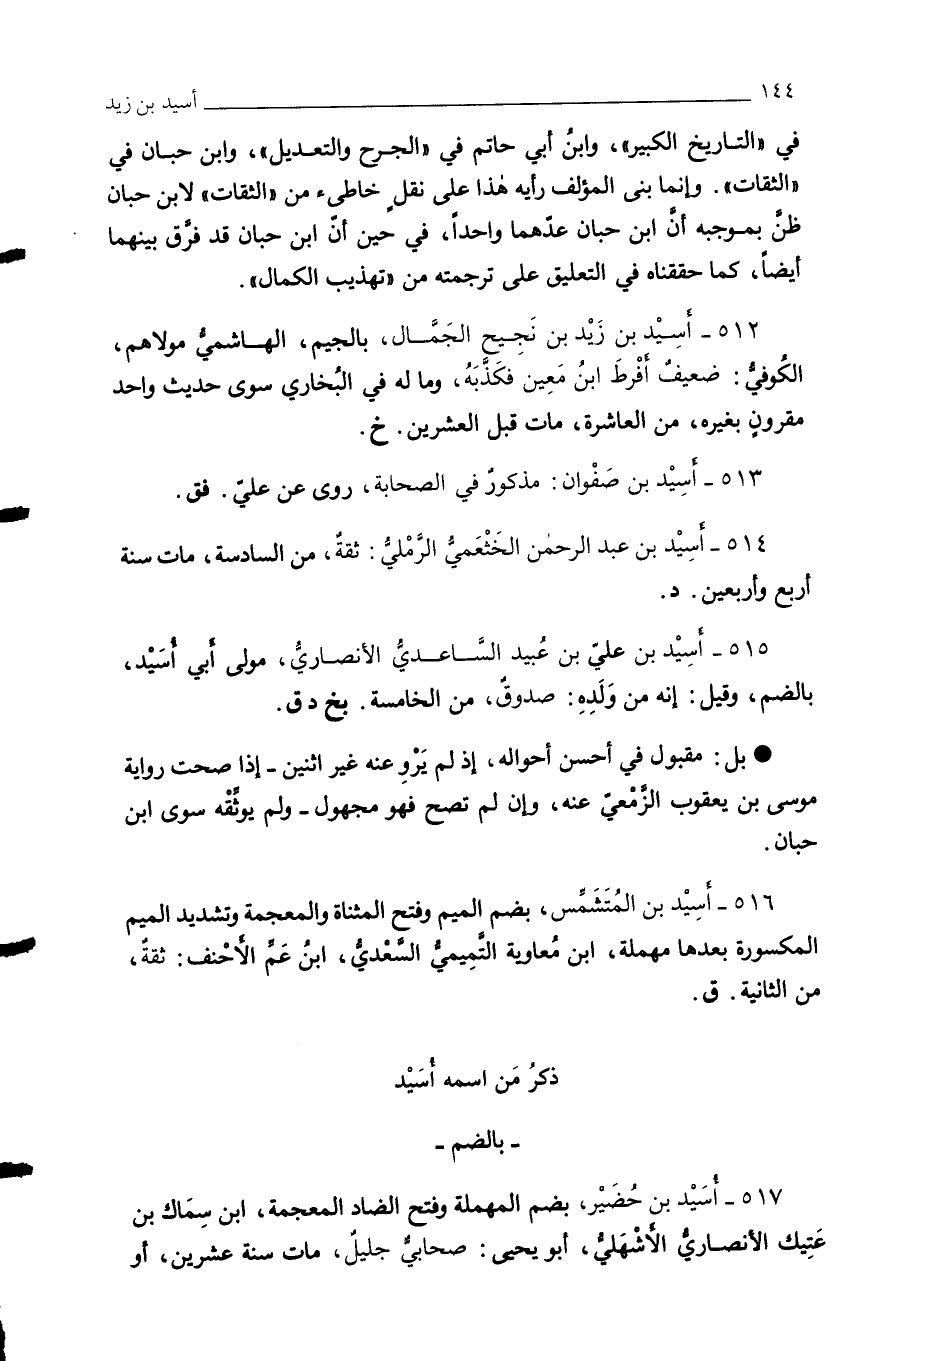 ١٤٤ أسيد بن زيد
في «التاريخ الكبير»، وابنُ أبي حاتم في «الجرح والتعديل»، وابن حبان في
«الثقات». وإنما بنى المؤلف رأيه هٰذا على نقلٍ خاطىء من «الثقات» لابن حبان
ظنَّ بموجبه أنَّ ابن حبان عدّهما واحداً، في حين أنّ ابن حبان قد فرَّق بينهما
أيضاً، كما حققناه في التعليق على ترجمته من «تهذيب الكمال».
٥١٢ ـ أَسِيْد بن زَيْد بن نَجِيح الجَمَّال، بالجيم، الهاشميُّ مولاهم،
الكُوفيُّ: ضعيفٌ أَفْرطَ ابنُ مَعِين فكَذَّبَهُ، وما له في البُخاري سوى حديث واحد
مقرونٍ بغيره، من العاشرة، مات قبل العشرين. خ.
٥١٣ ـ أَسِيْد بن صَفْوان: مذكورٌ في الصحابة، روى عن عليّ. فق.
٥١٤ ـ أَسِيْد بن عبد الرحمٰن الخَثْعَميُّ الرَّمْليُّ: ثقةٌ، من السادسة، مات سنة
أربع وأربعين. د.
٥١٥ ـ أَسِيْد بن عليّ بن عُبيد السَّاعديُّ الأنصاريُّ، مولى أبي أُسَيْد،
بالضم، وقيل: إنه من وَلَدِهِ: صدوقٌ، من الخامسة. بخ د ق.
● بل: مقبول في أحسن أحواله، إذ لم يَرْوِ عنه غير اثنين ـ إذا صحت رواية
موسى بن يعقوب الزَّمْعيّ عنه، وإن لم تصح فهو مجهول ـ ولم يوثِّقْه سوى ابن
حبان.
٥١٦ ـ أَسِيْد بن المُتَشَمِّس، بضم الميم وفتح المثناة والمعجمة وتشديد الميم
المكسورة بعدها مهملة، ابن مُعاوية التَّمِيميُّ السَّعْديُّ، ابنُ عَمِّ الأَحْنف: ثقةٌ،
من الثانية. ق.
ذكرُ مَن اسمه أُسَيْد
ـ بالضم ـ
٥١٧ ـ أُسَيْد بن حُضَيْر، بضم المهملة وفتح الضاد المعجمة، ابن سِمَاك بن
عَتِيك الأنصاريُّ الأَشْهَليُّ، أبو يحيى: صحابيٌّ جليلٌ، مات سنة عشرين، أو